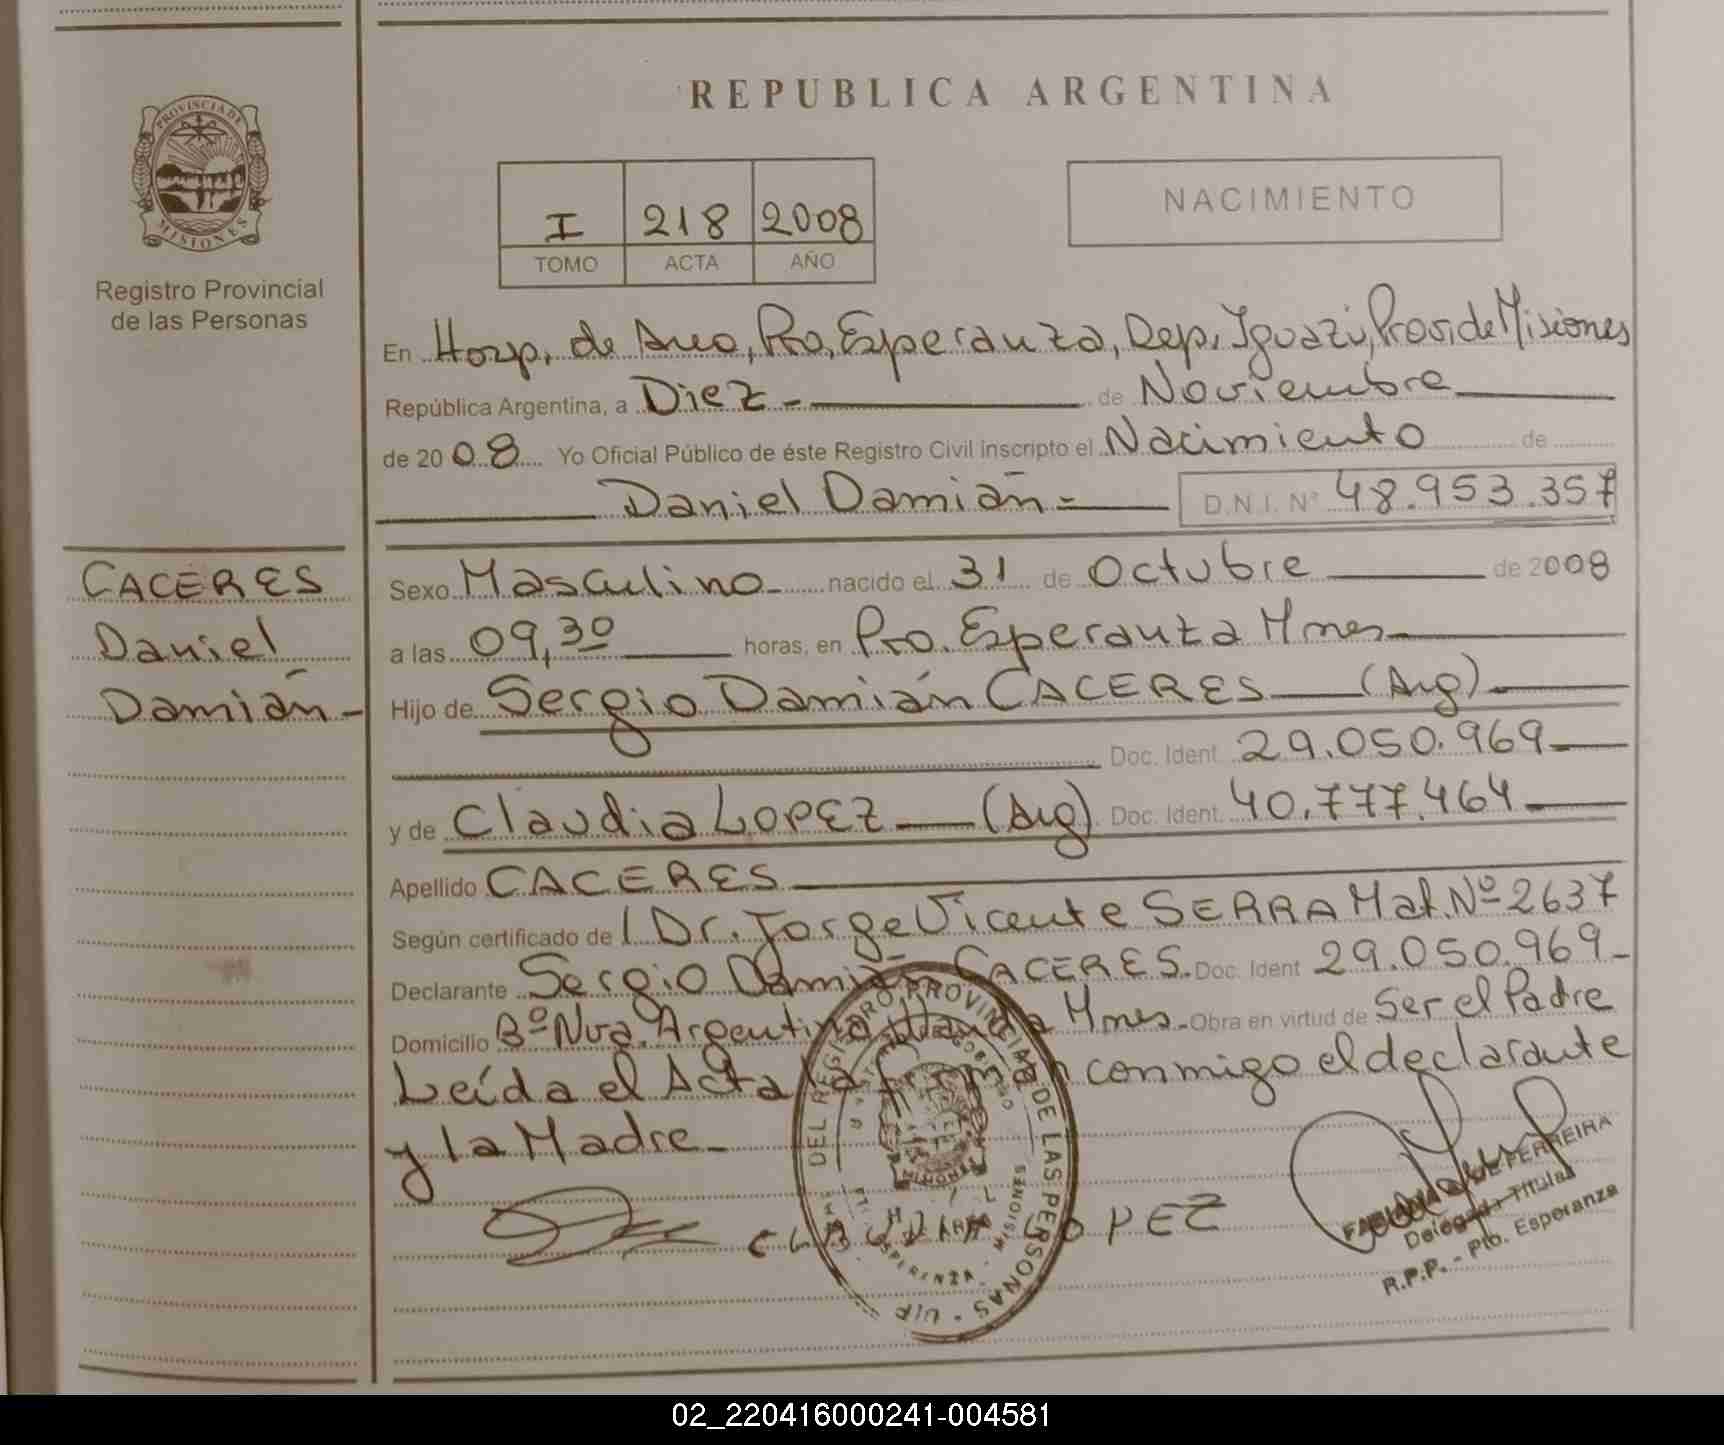 REPUBLICA ARGENTINA
PROVINCIA DE
MISIONES
Registro Provincial
de las Personas
I 218 2008
TOMO ACTA AÑO
NACIMIENTO
En Hosp. de Area, Pto. Esperanza, Dep. Iguazú, Prov. de Misiones
República Argentina, a Diez - de Noviembre
de 2008 Yo Oficial Público de éste Registro Civil inscripto el Nacimiento de
Daniel Damián = D.N.I. Nº 48.953.357
CACERES
Daniel
Damián -
Sexo Masculino - nacido el 31 de Octubre de 2008
a las 09,30 horas, en Pto. Esperanza Mnes -
Hijo de Sergio Damián CACERES (Arg) -
Doc. Ident. 29.050.969 -
y de Claudia LOPEZ (Arg) Doc. Ident. 40.777.464 -
Apellido CACERES
Según certificado de l Dr. Jorge Vicente SERRA Mat. Nº 2637
Declarante Sergio Damián CACERES. Doc. Ident 29.050.969 -
Domicilio Bº Nva. Argentina Wanda Mnes. - Obra en virtud de Ser el Padre
Leída el Acta la firman conmigo el declarante
y la Madre -
DEL REGISTRO PROVINCIAL DE LAS PERSONAS
MISIONES
CLAUDIA LOPEZ
FERREIRA
Delegada Titular
R.P.P. - Pto. Esperanza
02_220416000241-004581